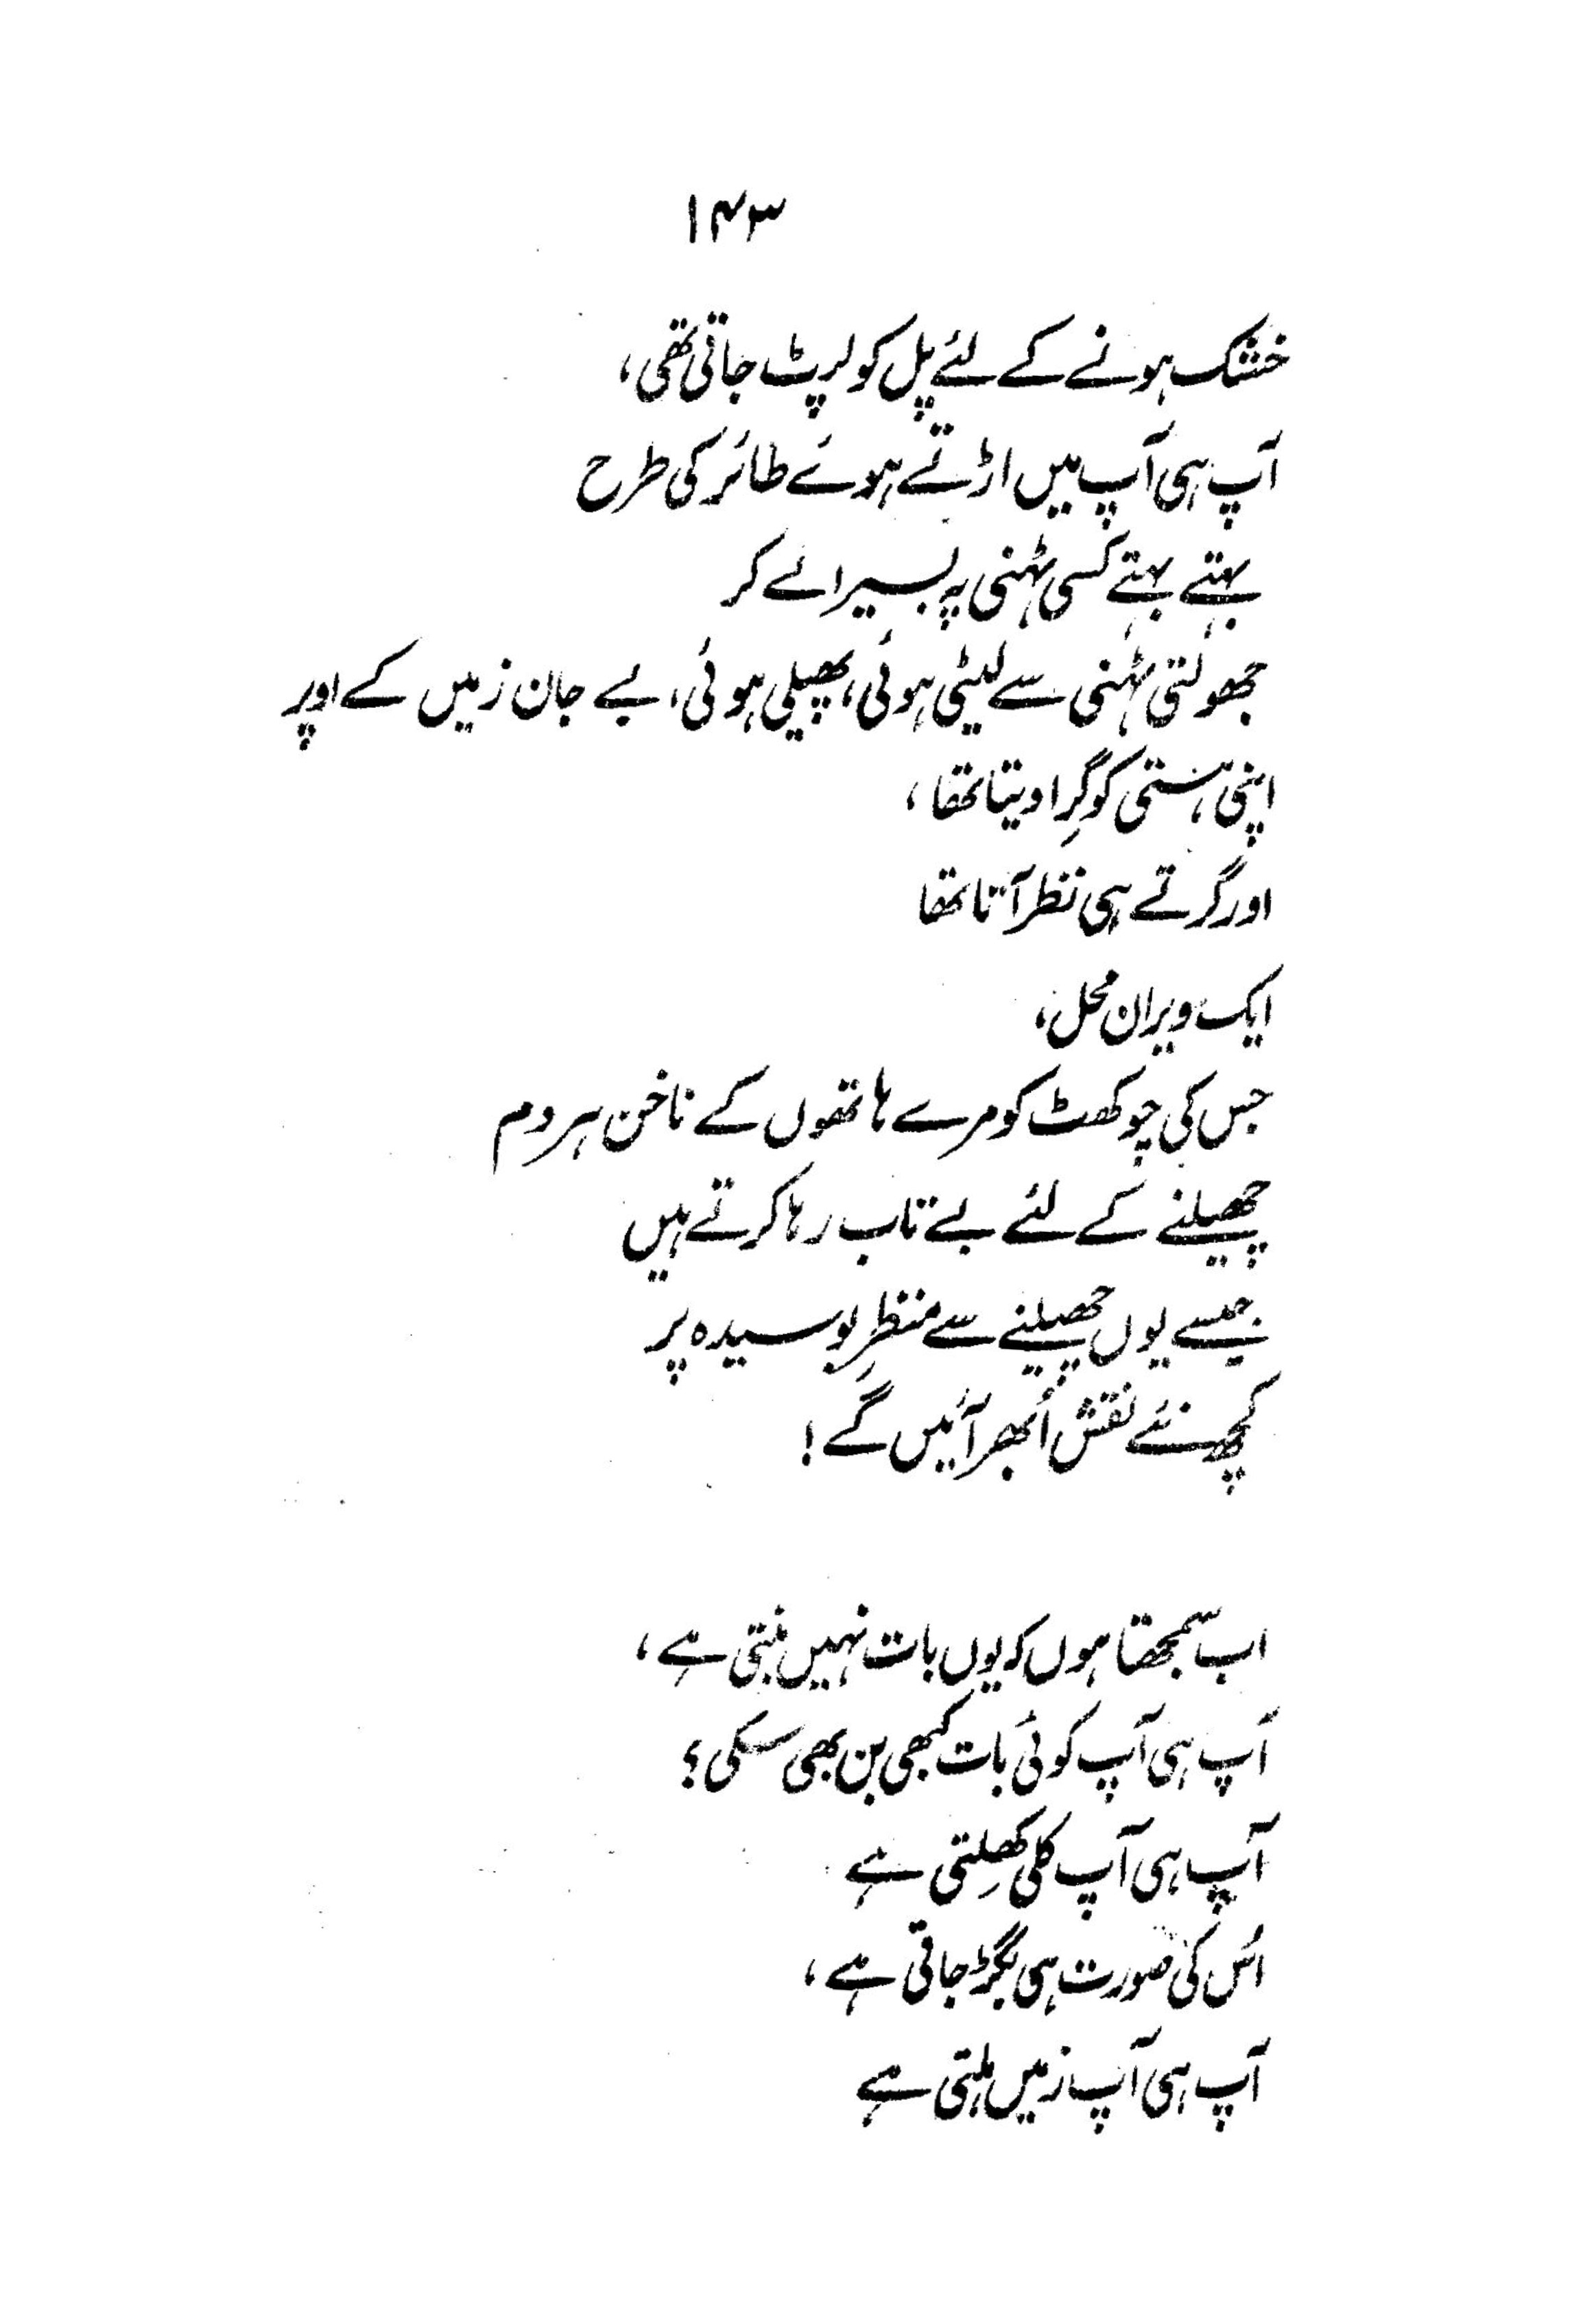 ۱۴۳
خشک ہونے کے لئے پل کو لرپٹ جاتی تھی،
آپ ہی آپ میں اڑتے ہوئے طائر کی طرح
بہتے بہتے کسی ٹہنی پہ بسیرا لے کر
جھولتی ٹہنی سے لپٹی ہوئی، پھیلی ہوئی، بے جان زمیں کے اوپر
اپنی ہستی کو گِرا دیتا تھا،
اور گرتے ہی نظر آتا تھا
ایک ویران محل،
جس کی چوکھٹ کو مرے ہاتھوں کے ناخن ہر دم
چھیلنے کے لئے بے تاب رہا کرتے ہیں
جیسے یوں چھیلنے سے منظرِ بوسیدہ پر
کچھ نئے نقش اُبھر آئیں گے!
اب سمجھتا ہوں کہ یوں بات نہیں بنتی ہے،
آپ ہی آپ کوئی بات کبھی بن بھی سکی؟
آپ ہی آپ کلی کھِلتی ہے
اُس کی صورت ہی بگڑ جاتی ہے،
آپ ہی آپ زمیں ہلتی ہے